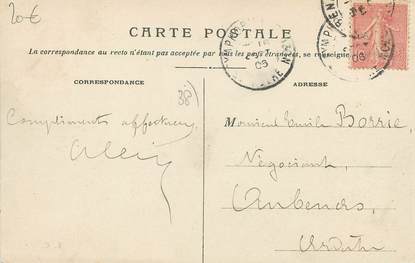 20€
CARTE POSTALE
La correspondance au recto n'étant pas acceptée par tous les pays étrangers, se renseigner
CORRESPONDANCE
38)
Compliments affectueux
ADRESSE
Monsieur Emile Borrie
Négociant
Aubenas
Ardèche